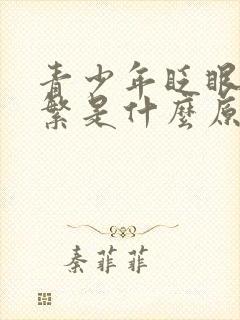 青少年眨眼
繁是什麼原
秦菲菲